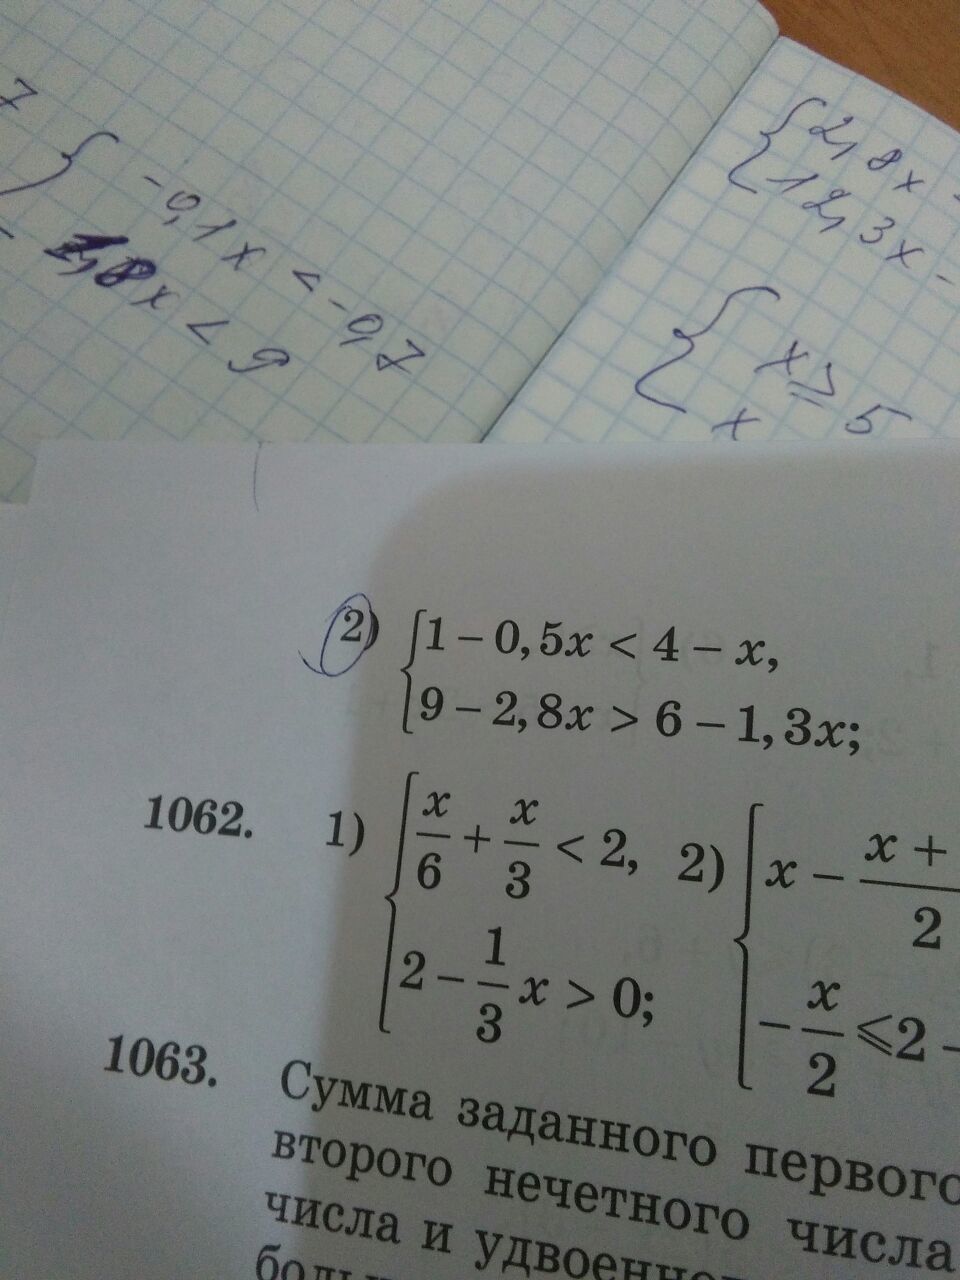 7
{ -0,1x < -0,7
1,8x < 9
{ 2,8x
12,3x -
{ x ≥ 5
x
2) { 1 – 0,5x < 4 – x,
9 – 2,8x > 6 – 1,3x;
1062. 1) { x/6 + x/3 < 2, 2) { x – x + / 2
2 – 1/3 x > 0; – x/2 ⩽ 2 –
1063. Сумма заданного первого
второго нечетного числа
числа и удвоенно
боль